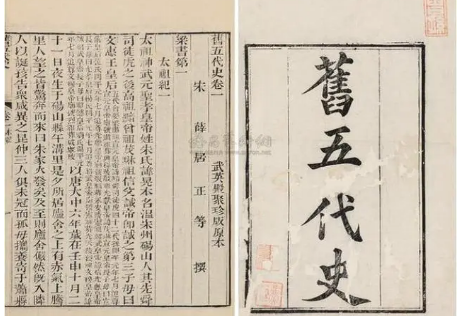 舊五代史
舊五代史卷一 武英殿聚珍版原本
宋薛居正等撰
梁書第一
太祖紀一
太祖神武元聖孝皇帝姓朱氏諱晃本名溫宋州碭山人其先舜
司徒虎之後高祖黯曾祖茂琳祖信父誠帝即誠之第三子母曰
文惠王皇后 以唐大中六年歲在壬申十月二
十一日夜生于碭山縣午溝里是夕所居廬舍之上有赤氣上騰
里人望之皆驚奔而來曰朱家火發矣及至則廬舍儼然既入鄰
人以誕孩告衆咸異之昆仲三人俱未冠而孤母攜養寄于蕭縣